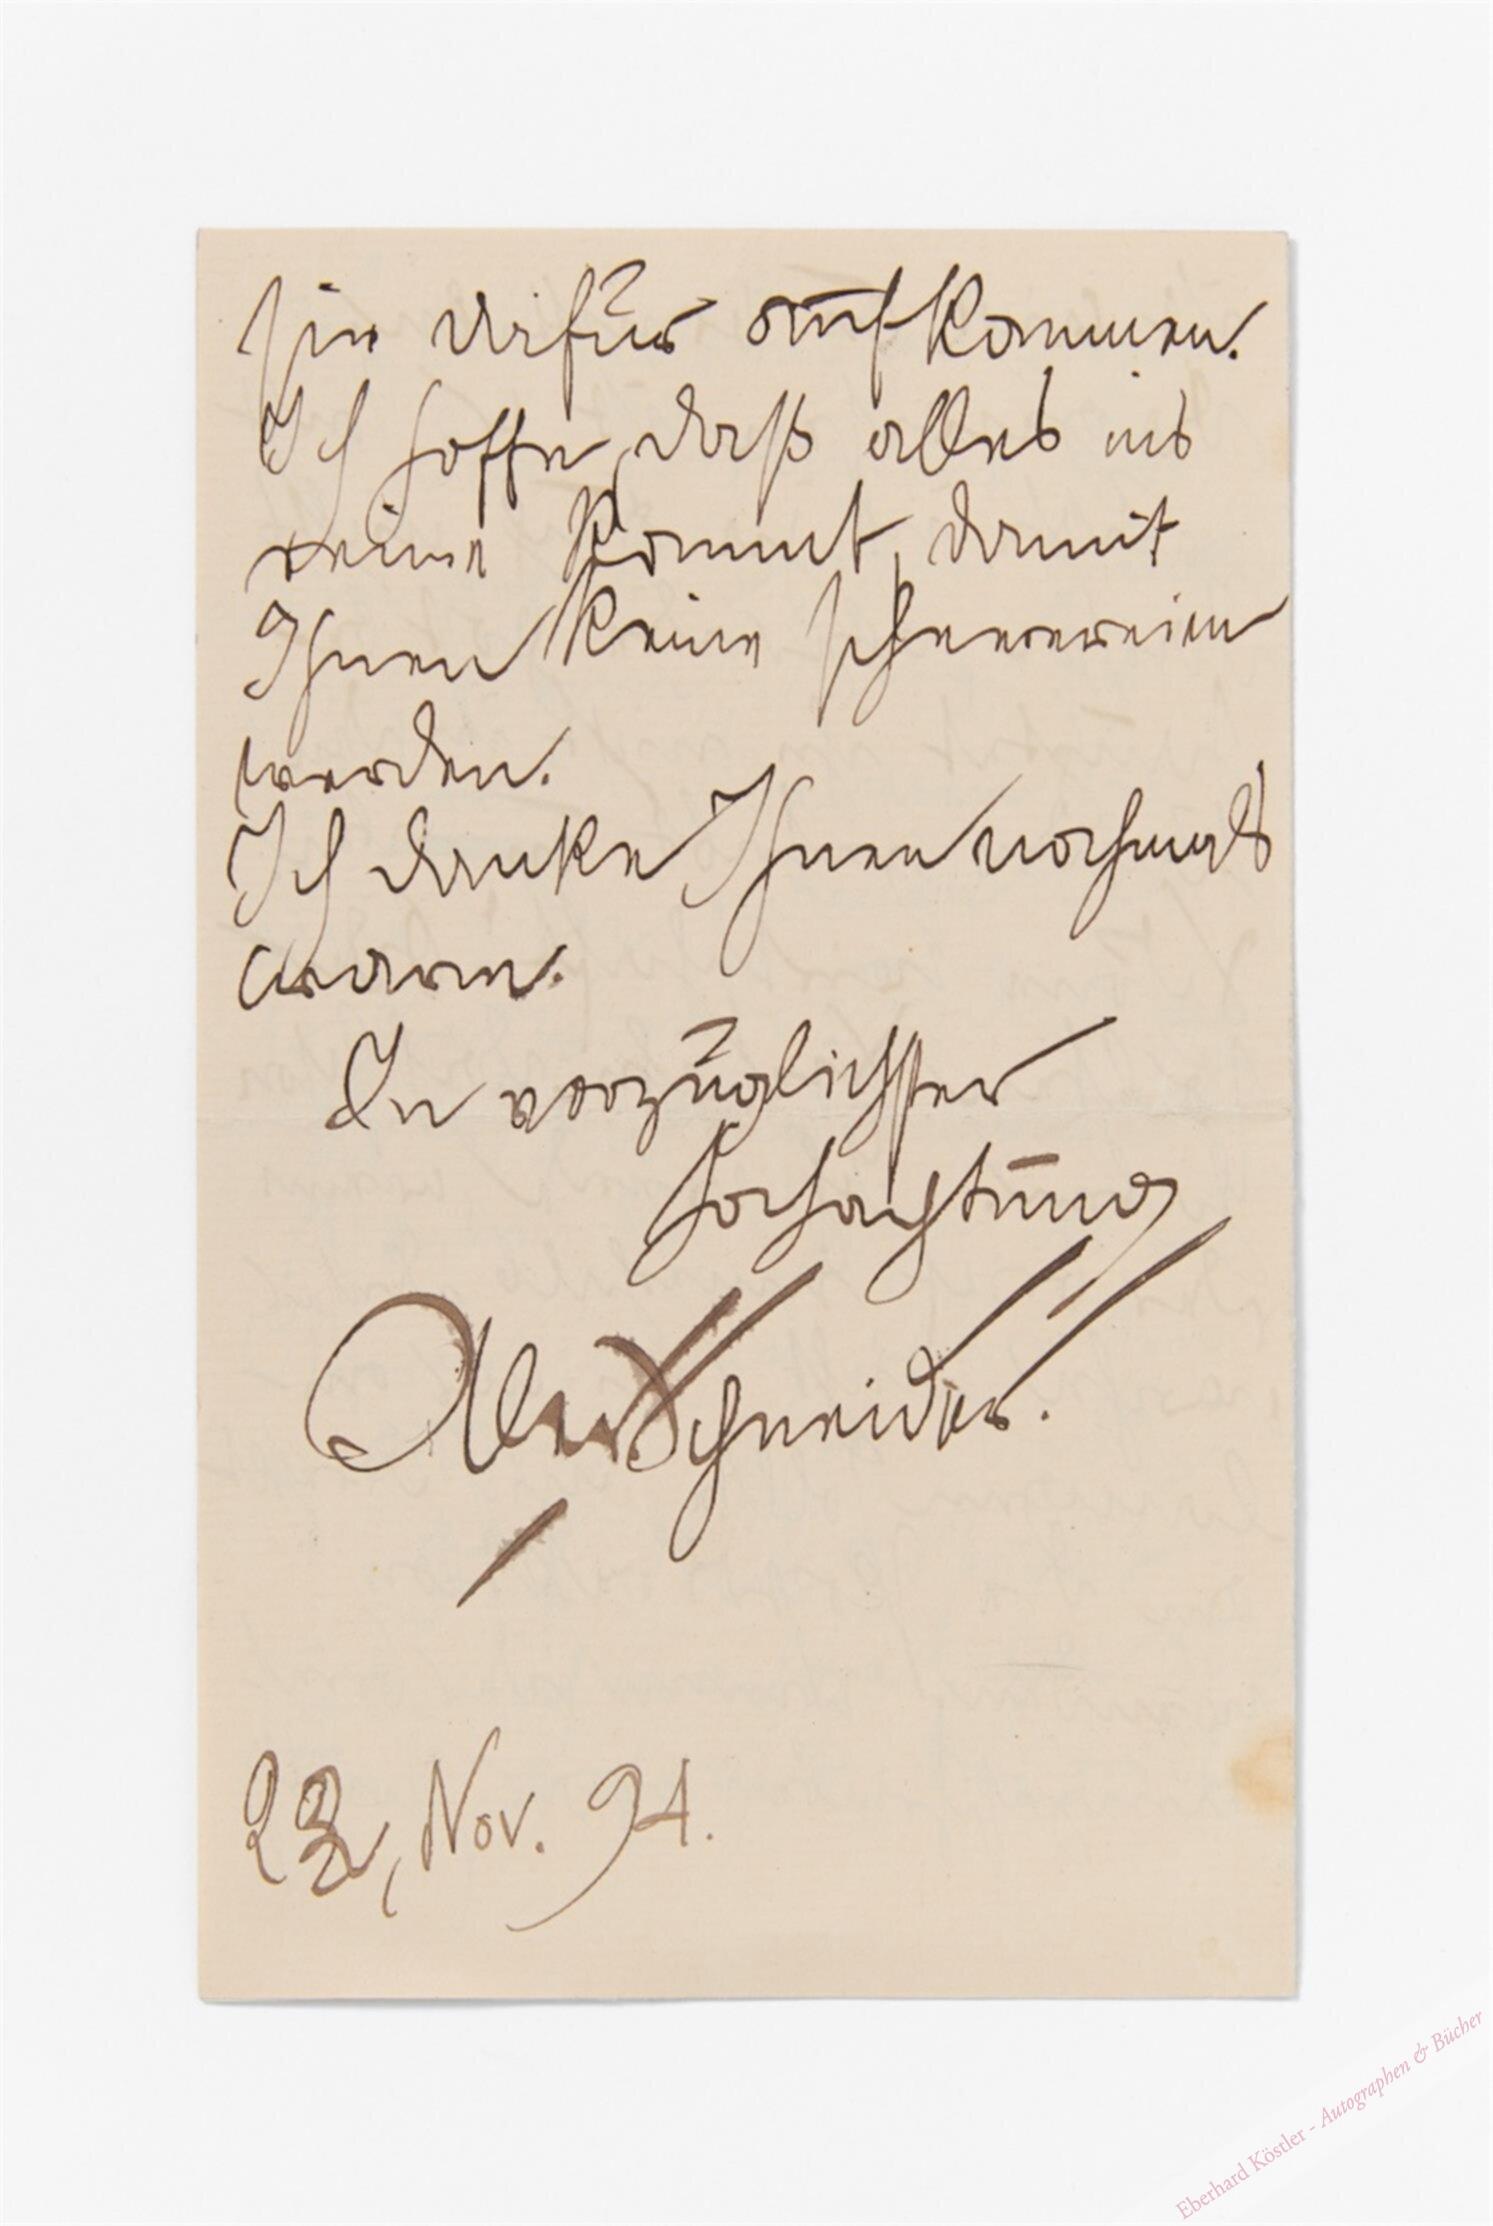 sie dafür aufkommen.
Ich hoffe, daß alles ins
reine kommt, damit
Ihnen keine scheerereien
werden.
Ich danke Ihnen nochmals
warm.
In vorzüglichster
Hochachtung
Schneider.
Nov. 94.
Eberhard Köstler - Autographen & Bücher